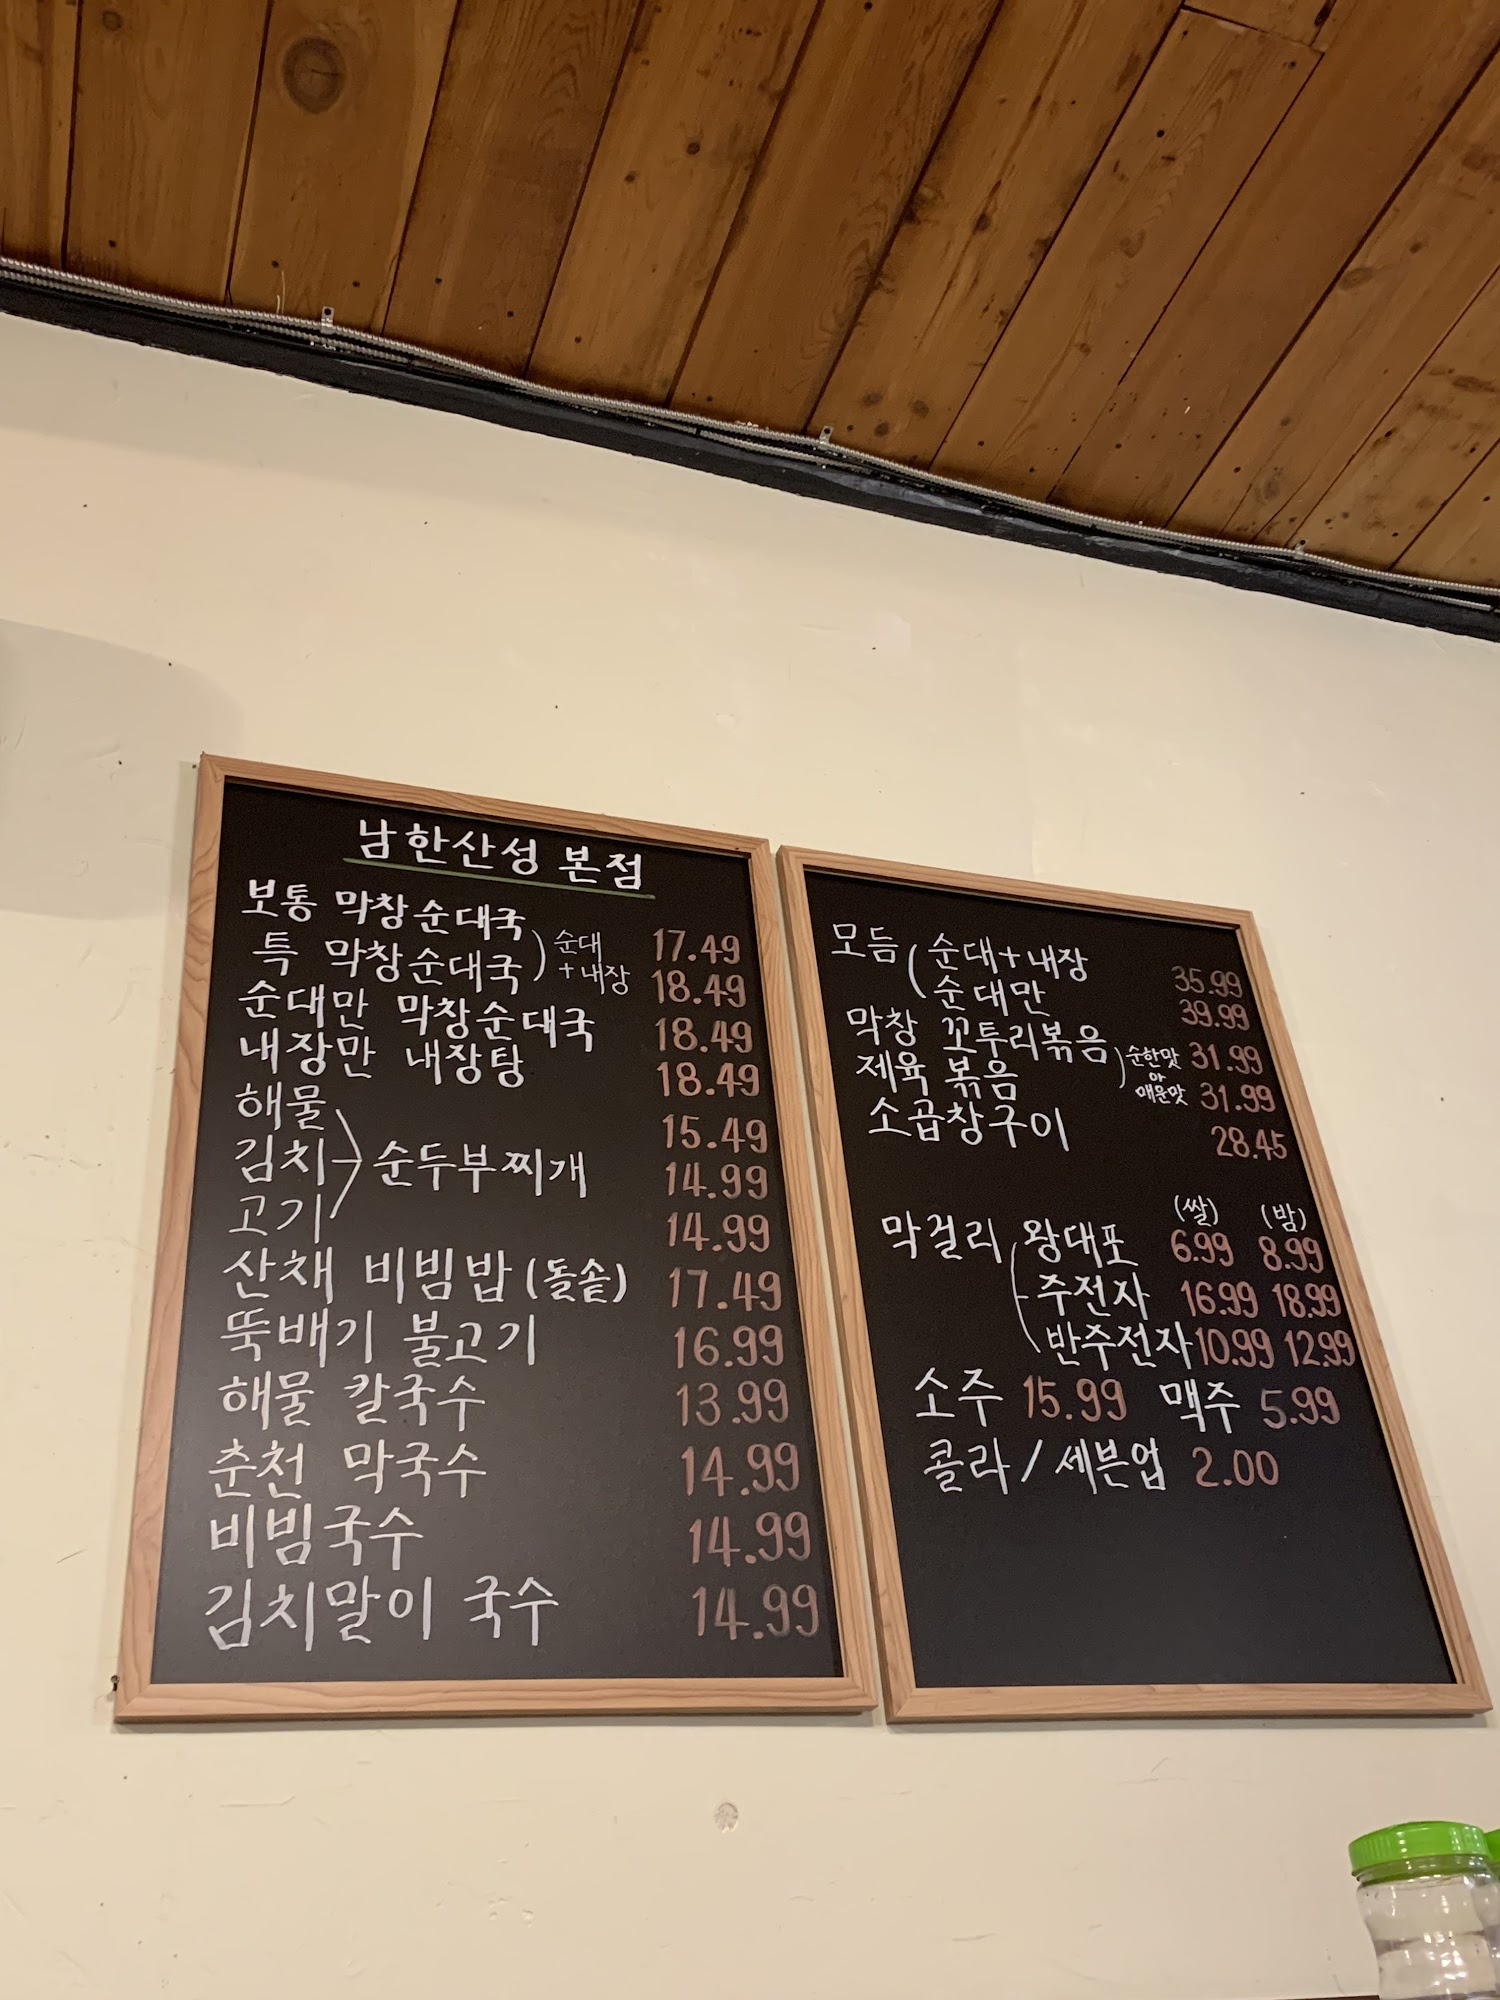 남한산성 본점
보통 막창순대국 17.49
특 막창순대국 18.49
순대
+내장
순대만 막창순대국 18.49
내장만 내장탕 18.49
해물 15.49
김치 순두부찌개 14.99
고기 14.99
산채 비빔밥 (돌솥) 17.49
뚝배기 불고기 16.99
해물 칼국수 13.99
춘천 막국수 14.99
비빔국수 14.99
김치말이 국수 14.99
모듬 ( 순대+내장 35.99
순대만 39.99
막창 꼬투리볶음 31.99
제육 볶음 31.99
순한맛
or
매운맛
소곱창구이 28.45
(쌀) (밤)
막걸리 왕대포 6.99 8.99
주전자 16.99 18.99
반주전자 10.99 12.99
소주 15.99 맥주 5.99
콜라 / 세븐업 2.00